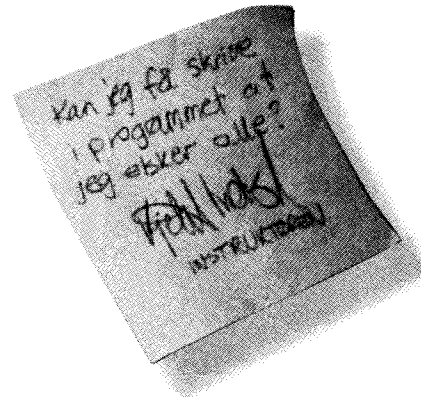 Kan jeg få skrive
i programmet at
jeg elsker alle?
INSTRUKTØREN